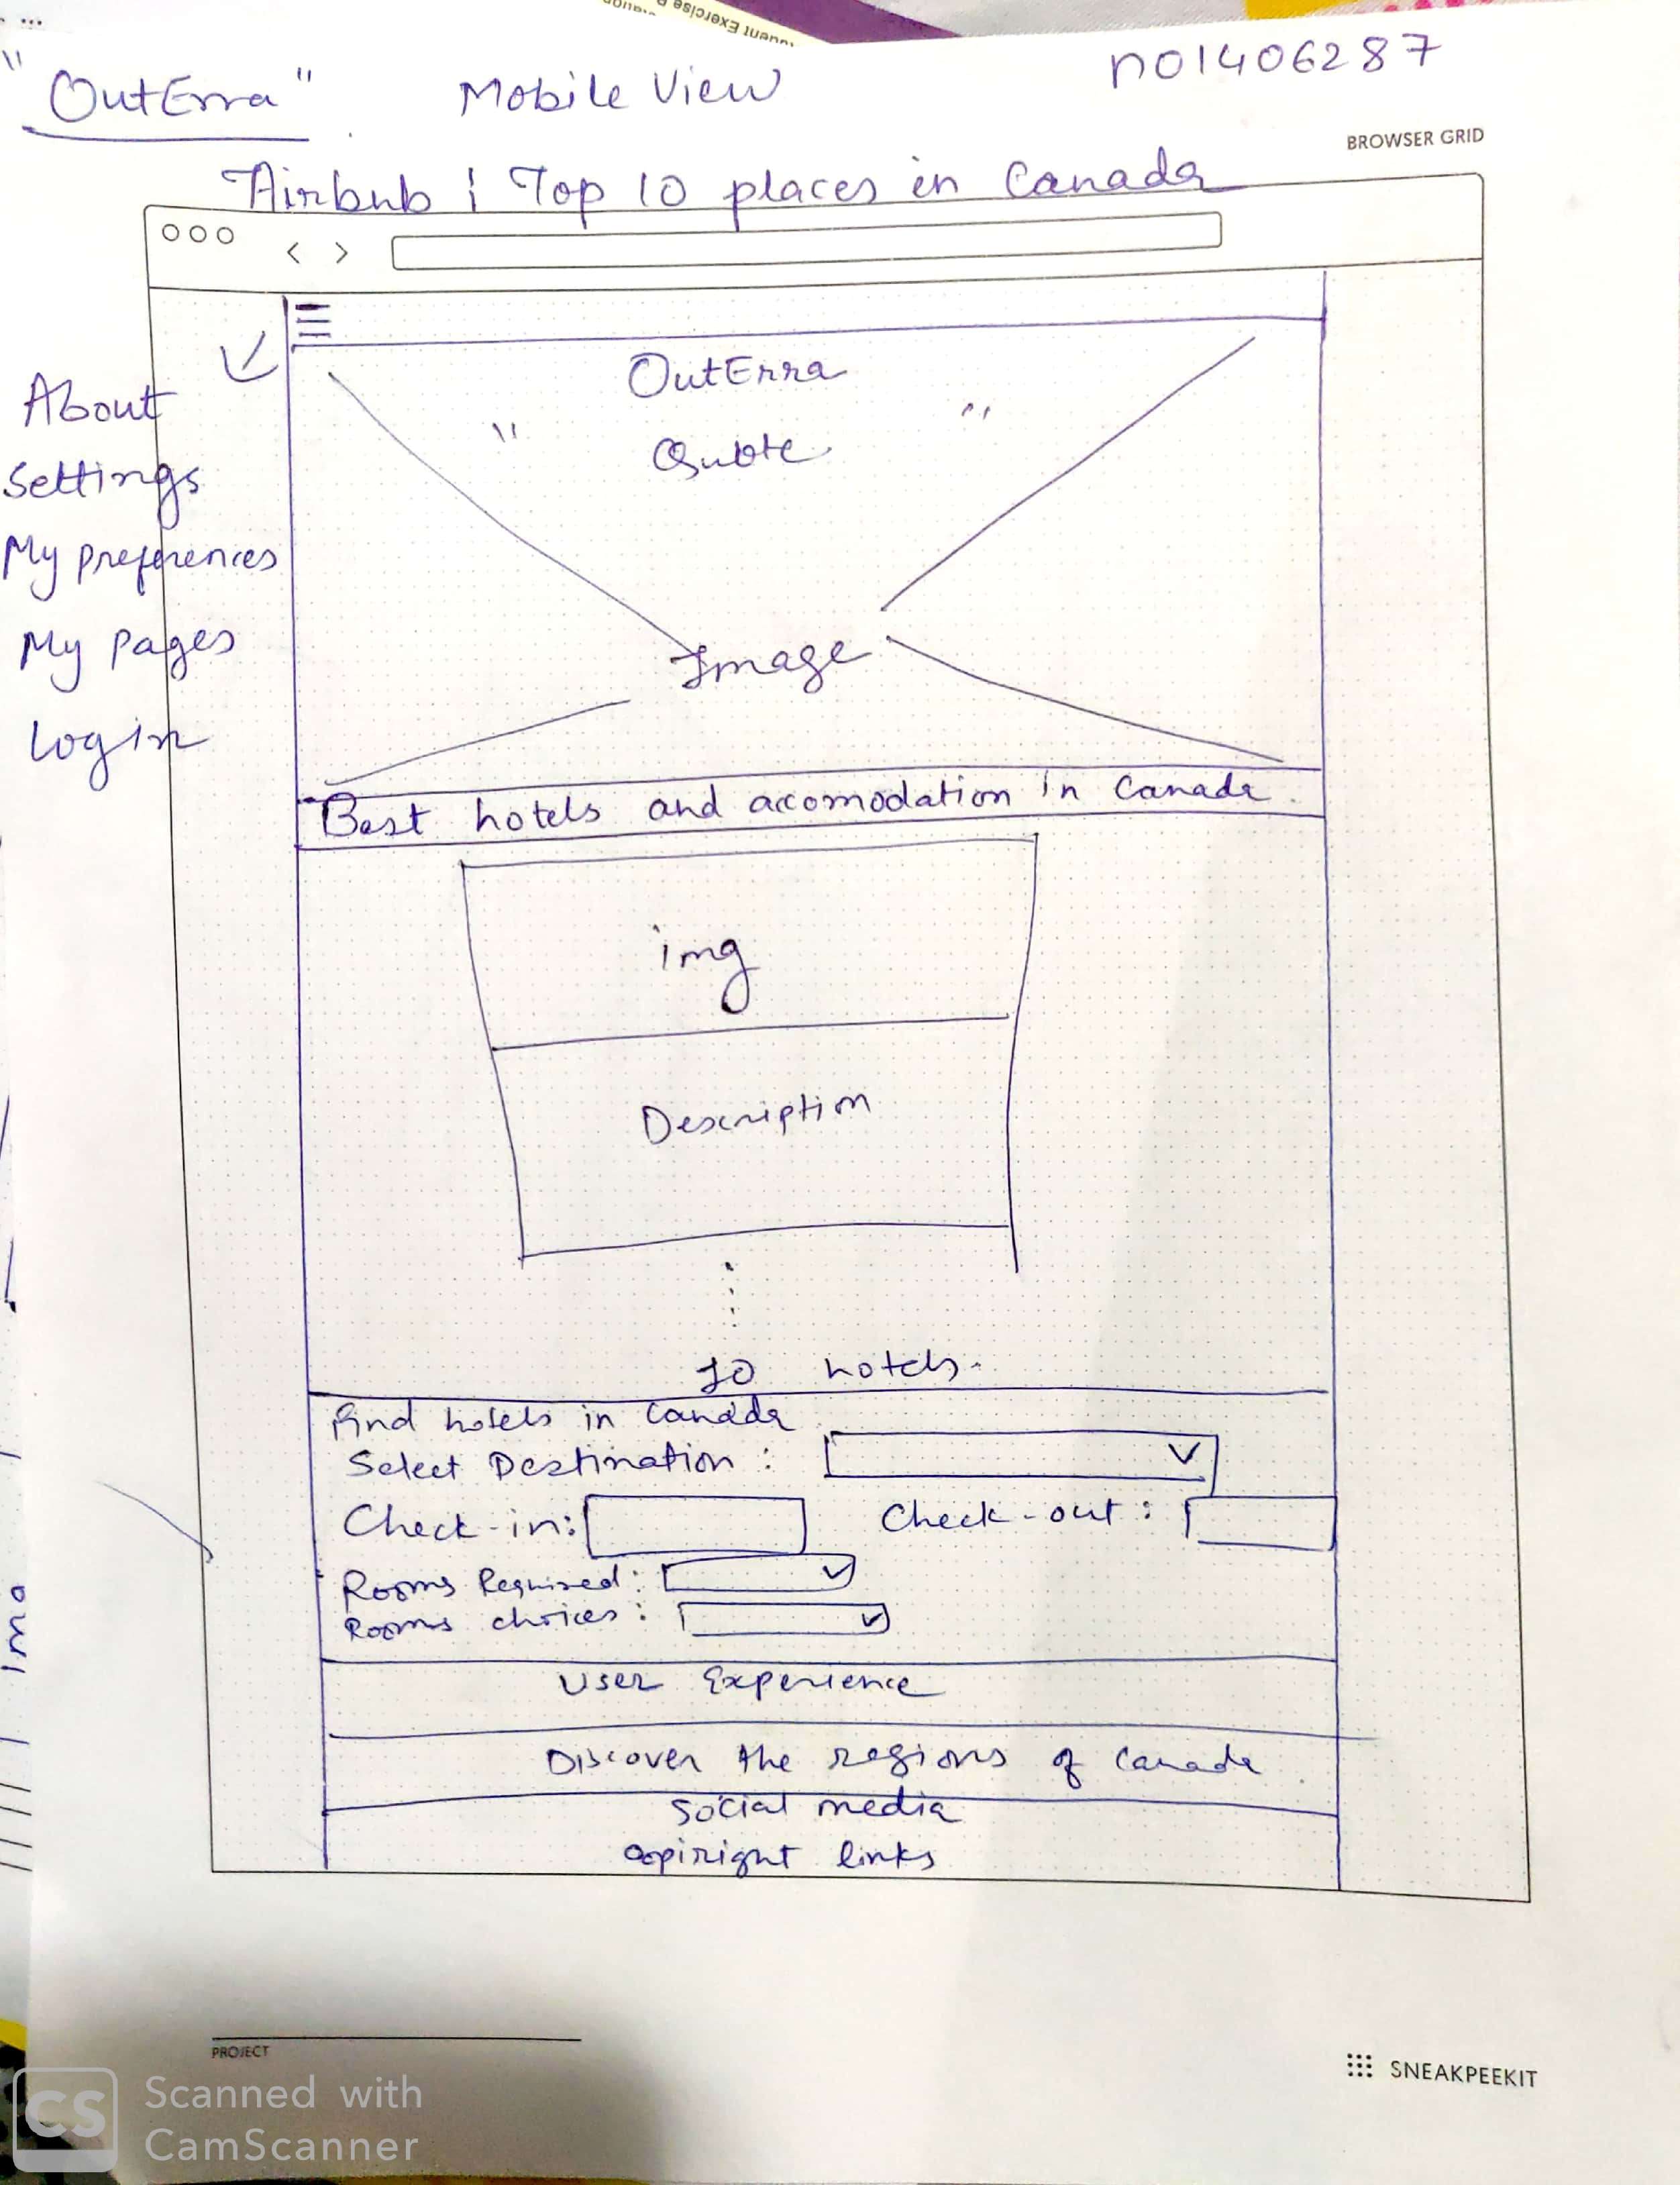 "OutErra" Mobile View n01406287
BROWSER GRID
Airbnb | Top 10 places in Canada
OutErra
" Quote "
About
Settings
My preferences
My pages
Login
Image
Best hotels and accomodation in Canada.
img
Description
10 hotels.
find hotels in Canada
Select Destination :
Check-in: Check-out :
Rooms Required :
Rooms choices :
User Experience
Discover the regions of Canada.
social media
copiright links
PROJECT
SNEAKPEEKIT
CS Scanned with
CamScanner